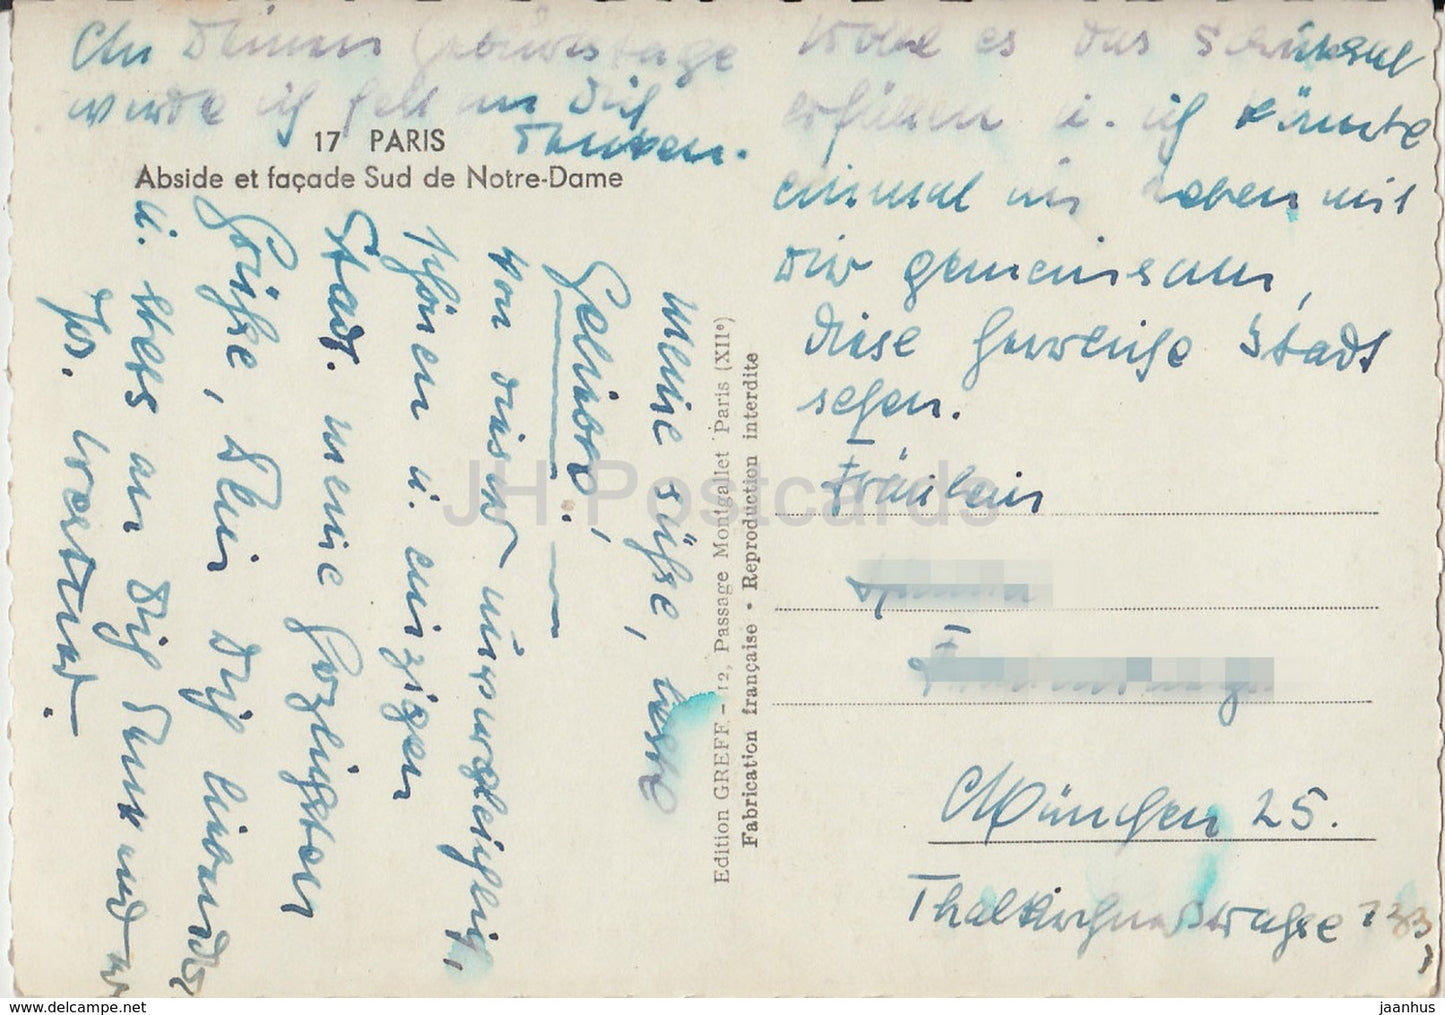 An Deinem Geburtstage
werde ich fest an Dich
denken.
17 PARIS
Abside et façade Sud de Notre-Dame
Meine süße, beste
Geliebte!
Von dieser unvergleichlich
schönen u. einzigen
Stadt. meine herzlichsten
Grüße, Dein Dich liebender
u. stets an Dich denkender
Edition GREFF - 12, Passage Montgallet Paris (XIIe)
Fabrication française • Reproduction interdite
Wolle es das Schicksal
erfüllen u. ich könnte
einmal im Leben mit
Dir gemeinsam,
diese herrliche Stadt
sehen.
Fräulein
München 25.
Thalkirchnerstrasse
JH Postcards
www.hippostcard.com
jaanhus